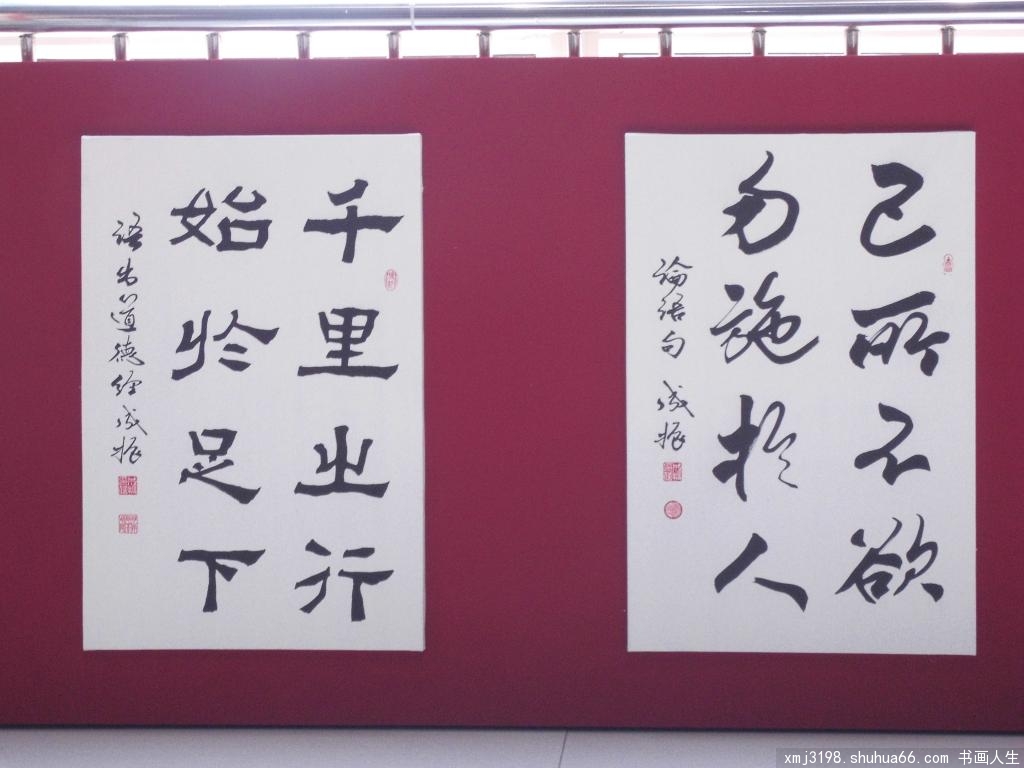 己所不欲
勿施於人
論語句 成振
千里之行
始於足下
語出道德經 成振
xmj3198.shuhua66.com 书画人生